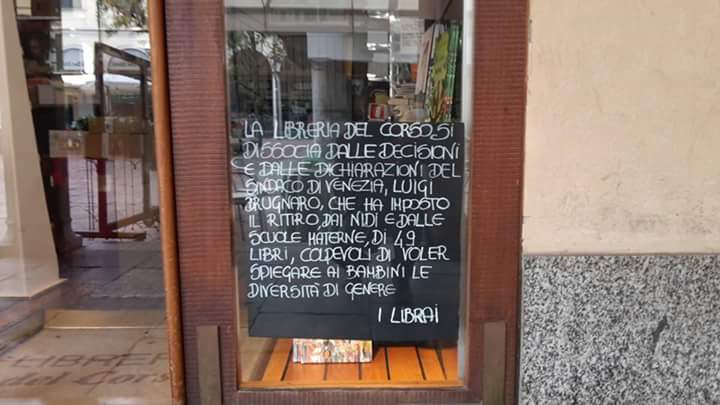 LA LIBRERIA DEL CORSO SI
DISSOCIA DALLE DECISIONI
E DALLE DICHIARAZIONI DEL
SINDACO DI VENEZIA, LUIGI
BRUGNARO, CHE HA IMPOSTO
IL RITIRO, DAI NIDI E DALLE
SCUOLE MATERNE, DI 49
LIBRI, COLPEVOLI DI VOLER
SPIEGARE AI BAMBINI LE
DIVERSITÀ DI GENERE
I LIBRAI
del Cors